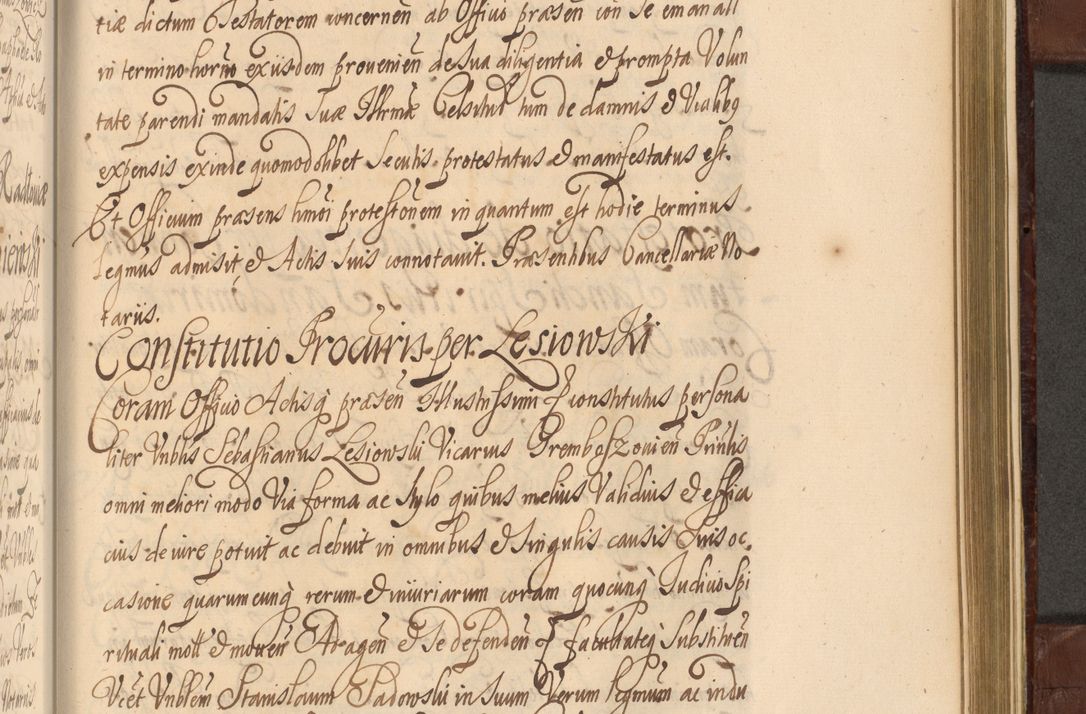 tiæ dictum Testatorem concernen ab Officio præsen con se emanatt
in termino horno exiisdem provenien de sua diligentia et prompta Volun
tate parendi mandatis suæ Illrmæ Celsitud tum de damnis et Vialibq
expensis exinde quomodolibet secutis protestatus et manifestatus est.
Et Officium præsens hmoi protestonem in quantum est hodie terminus
legmus admisit et Actis suis connotavit. Præsentibus Cancellariæ No
tariis.
Constitutio Procuris per Lesiowski
Coram Officio Actisq præsen Illustrissimi constitutus persona
liter Vnblis Sebastianus Lesiowski Vicarius Premboszovien Prinlis
omni meliori modo Via forma ac stylo quibus melius Validius et effica
cius de iure potuit ac debuit in omnibus et singulis causis suis oc
casione quarumcunq rerum et iniuriarum coram quocunq Iudicio Spi
rituali mott et moven Et agen et se defenden facultateq substituen
Vicet Vnblem Stanislaum Sadowski in suum Verum legmum ac indu